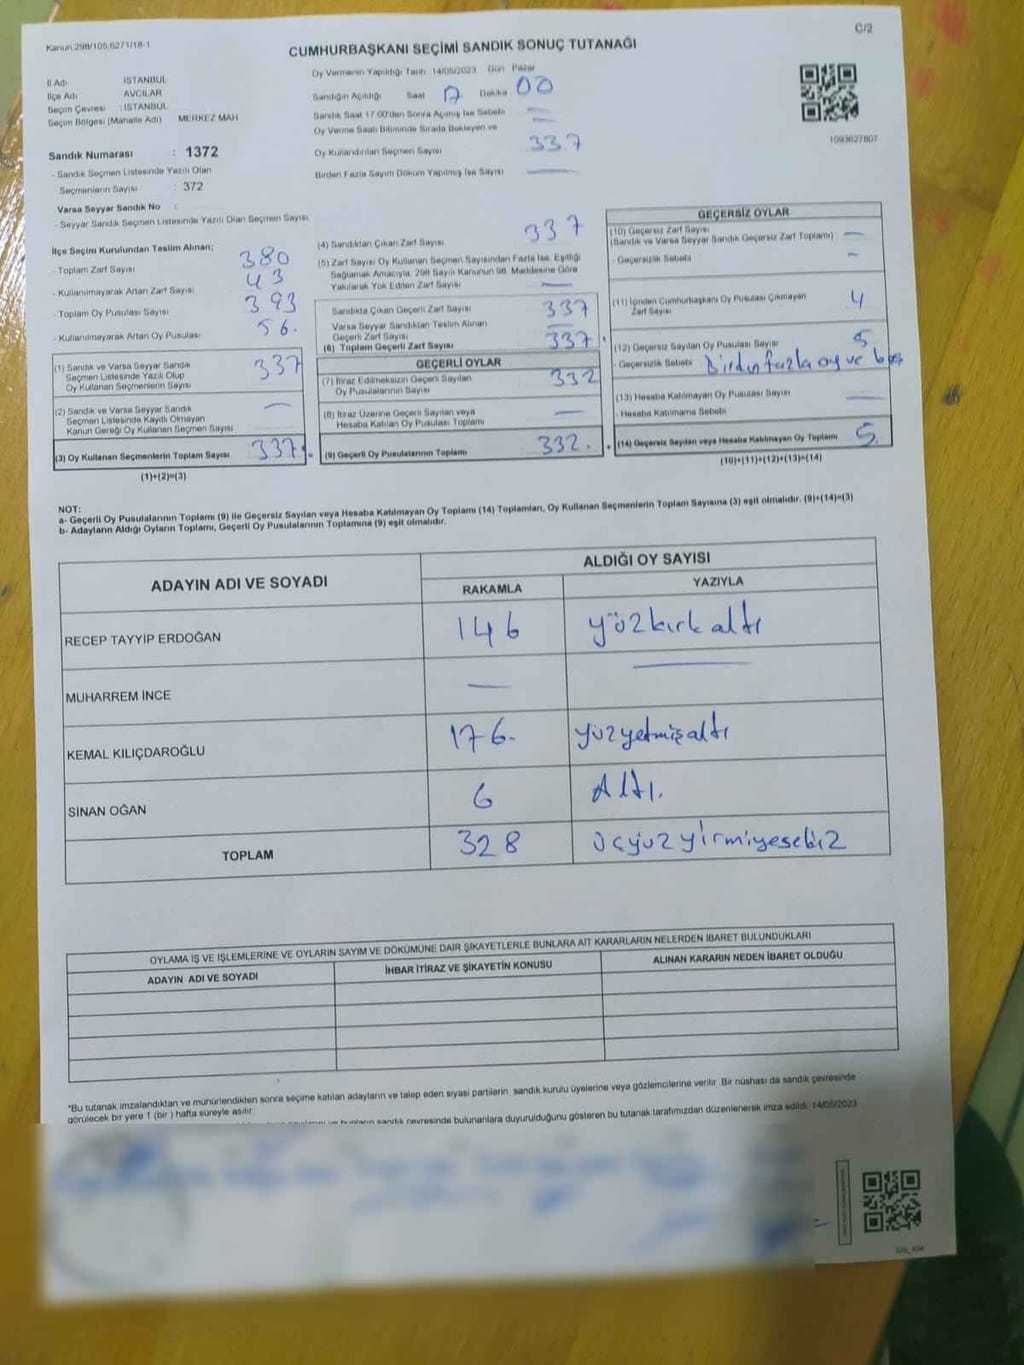 Kanun:298/105,6271/18-1
C/2
CUMHURBAŞKANI SEÇİMİ SANDIK SONUÇ TUTANAĞI
İl Adı İSTANBUL
İlçe Adı AVCILAR
Seçim Çevresi : İSTANBUL
Seçim Bölgesi (Mahalle Adı) MERKEZ MAH
Sandık Numarası : 1372
- Sandık Seçmen Listesinde Yazılı Olan
Seçmenlerin Sayısı : 372
Varsa Seyyar Sandık No :
- Seyyar Sandık Seçmen Listesinde Yazılı Olan Seçmen Sayısı
Oy Vermenin Yapıldığı Tarih 14/05/2023 Gün Pazar
Sandığın Açıldığı Saat 17 Dakika 00
Sandık Saat 17.00'den Sonra Açılmış İse Sebebi —
Oy Verme Saati Bitiminde Sırada Bekleyen ve —
Oy Kullandırılan Seçmen Sayısı 337
Birden Fazla Sayım Döküm Yapılmış İse Sayısı —
1093627807
İlçe Seçim Kurulundan Teslim Alınan;
- Toplam Zarf Sayısı 380
- Kullanılmayarak Artan Zarf Sayısı 43
- Toplam Oy Pusulası Sayısı 393
- Kullanılmayarak Artan Oy Pusulası 56.
(1) Sandık ve Varsa Seyyar Sandık
Seçmen Listesinde Yazılı Olup
Oy Kullanan Seçmenlerin Sayısı 337
(2) Sandık ve Varsa Seyyar Sandık
Seçmen Listesinde Kayıtlı Olmayan
Kanun Gereği Oy Kullanan Seçmen Sayısı —
(3) Oy Kullanan Seçmenlerin Toplam Sayısı 337.
(1)+(2)=(3)
(4) Sandıktan Çıkan Zarf Sayısı 337
(5) Zarf Sayısı Oy Kullanan Seçmen Sayısından Fazla İse, Eşitliği
Sağlamak Amacıyla, 298 Sayılı Kanunun 98. Maddesine Göre
Yakılarak Yok Edilen Zarf Sayısı —
Sandıkta Çıkan Geçerli Zarf Sayısı 337
Varsa Seyyar Sandıktan Teslim Alınan
Geçerli Zarf Sayısı —
(6) Toplam Geçerli Zarf Sayısı 337.
GEÇERLİ OYLAR
(7) İtiraz Edilmeksizin Geçerli Sayılan
Oy Pusulalarının Sayısı 332
(8) İtiraz Üzerine Geçerli Sayılan veya
Hesaba Katılan Oy Pusulası Toplamı —
(9) Geçerli Oy Pusulalarının Toplamı 332.
GEÇERSİZ OYLAR
(10) Geçersiz Zarf Sayısı
(Sandık ve Varsa Seyyar Sandık Geçersiz Zarf Toplamı) —
- Geçersizlik Sebebi —
(11) İçinden Cumhurbaşkanı Oy Pusulası Çıkmayan
Zarf Sayısı 4
(12) Geçersiz Sayılan Oy Pusulası Sayısı 5
- Geçersizlik Sebebi Birden fazla oy ve boş
(13) Hesaba Katılmayan Oy Pusulası Sayısı —
- Hesaba Katılmama Sebebi
(14) Geçersiz Sayılan veya Hesaba Katılmayan Oy Toplamı 5
(10)+(11)+(12)+(13)=(14)
NOT:
a- Geçerli Oy Pusulalarının Toplamı (9) ile Geçersiz Sayılan veya Hesaba Katılmayan Oy Toplamı (14) Toplamları, Oy Kullanan Seçmenlerin Toplam Sayısına (3) eşit olmalıdır. (9)+(14)=(3)
b- Adayların Aldığı Oyların Toplamı, Geçerli Oy Pusulalarının Toplamına (9) eşit olmalıdır.
ADAYIN ADI VE SOYADI
ALDIĞI OY SAYISI
RAKAMLA YAZIYLA
RECEP TAYYİP ERDOĞAN 146 yüzkırkaltı
MUHARREM İNCE — —
KEMAL KILIÇDAROĞLU 176. yüzyetmişaltı
SİNAN OĞAN 6 Altı.
TOPLAM 328 üçyüzyirmiyesebiz
OYLAMA İŞ VE İŞLEMLERİNE VE OYLARIN SAYIM VE DÖKÜMÜNE DAİR ŞİKAYETLERLE BUNLARA AİT KARARLARIN NELERDEN İBARET BULUNDUKLARI
ADAYIN ADI VE SOYADI İHBAR İTİRAZ VE ŞİKAYETİN KONUSU ALINAN KARARIN NEDEN İBARET OLDUĞU
*Bu tutanak imzalandıktan ve mühürlendikten sonra seçime katılan adayların ve talep eden siyasi partilerin sandık kurulu üyelerine veya gözlemcilerine verilir. Bir nüshası da sandık çevresinde
görülecek bir yere 1 (bir ) hafta süreyle asılır.
ve bunların sandık çevresinde bulunanlara duyurulduğunu gösteren bu tutanak tarafımızdan düzenlenerek imza edildi. 14/05/2023